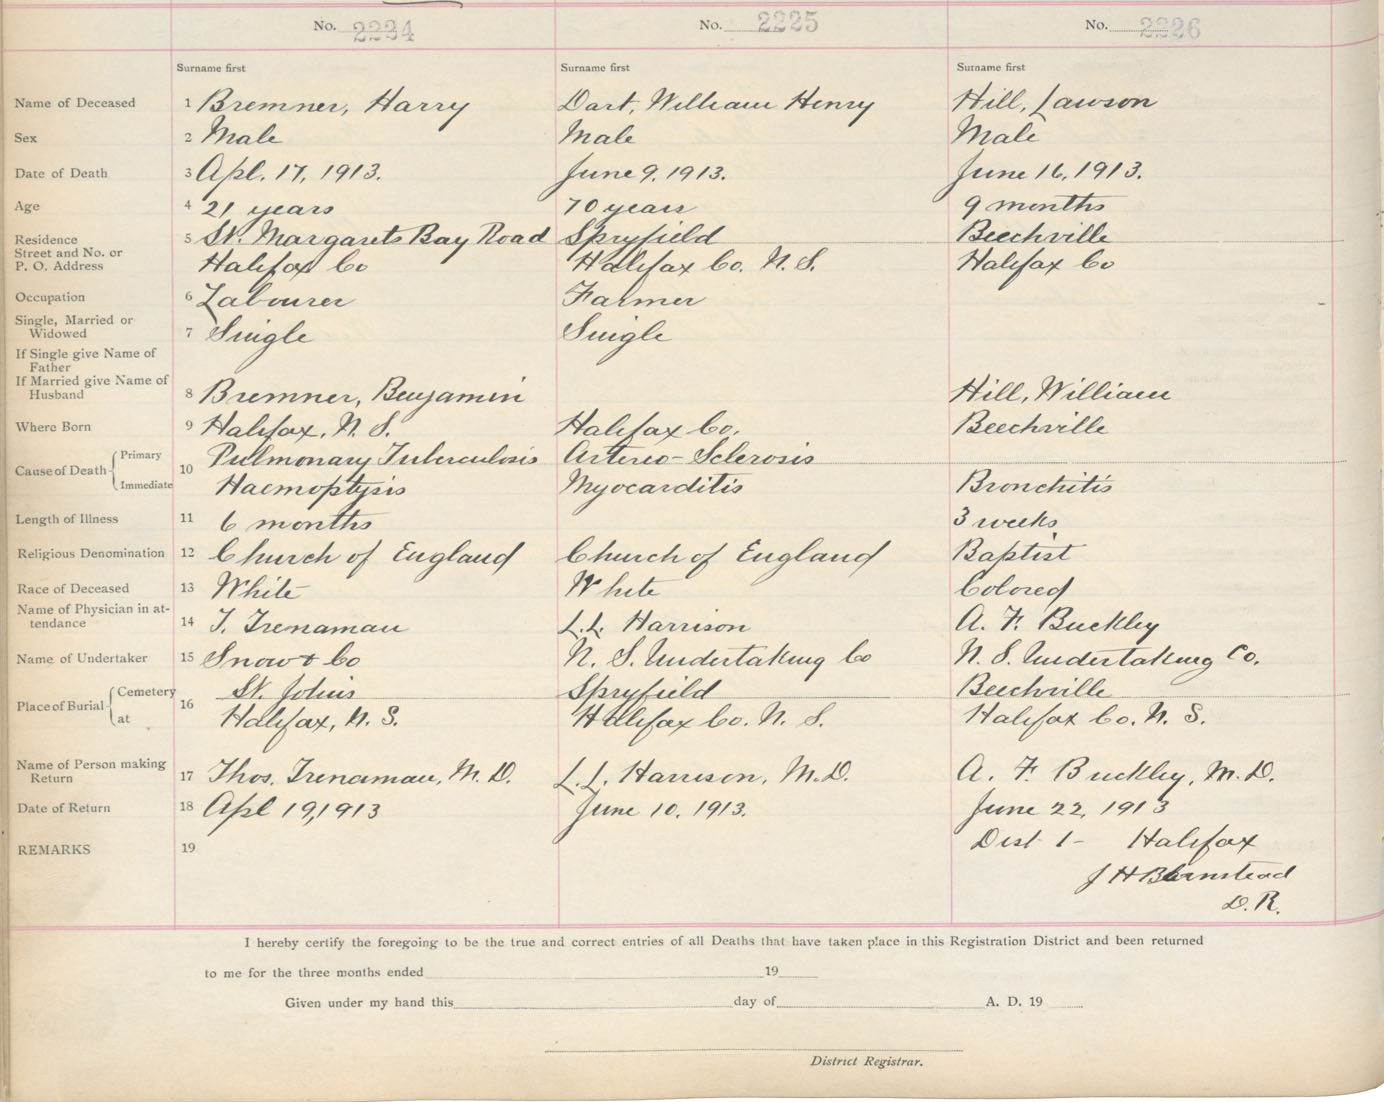 No. 2224 No. 2225 No. 2226
Surname first Surname first Surname first
Name of Deceased 1 Bremner, Harry Dart, William Henry Hill, Lawson
Sex 2 Male Male Male
Date of Death 3 Apl. 17, 1913. June 9. 1913. June 16, 1913.
Age 4 21 years 70 years 9 months
Residence 5 St. Margarets Bay Road Spryfield Beechville
Street and No. or
P. O. Address Halifax Co Halifax Co. N. S. Halifax Co
Occupation 6 Labourer Farmer
Single, Married or
Widowed 7 Single Single
If Single give Name of
Father
If Married give Name of
Husband 8 Bremner, Benjamin Hill, William
Where Born 9 Halifax, N. S. Halifax Co. Beechville
Cause of Death Primary 10 Pulmonary Tuberculosis Arterio-Sclerosis
Immediate Haemoptysis Myocarditis Bronchitis
Length of Illness 11 6 months 3 weeks
Religious Denomination 12 Church of England Church of England Baptist
Race of Deceased 13 White White Colored
Name of Physician in at-
tendance 14 T. Trenaman L.L. Harrison A. F. Buckley
Name of Undertaker 15 Snow & Co N. S. Undertaking Co N. S. Undertaking Co.
Place of Burial Cemetery 16 St. Johns Spryfield Beechville
at Halifax, N. S. Halifax Co. N. S. Halifax Co. N. S.
Name of Person making
Return 17 Thos. Trenaman, M. D. L. L. Harrison, M. D. A. F. Buckley, M. D.
Date of Return 18 Apl 19, 1913 June 10. 1913. June 22, 1913
REMARKS 19 Dist 1 - Halifax
J H Barnstead
D. R.
I hereby certify the foregoing to be the true and correct entries of all Deaths that have taken place in this Registration District and been returned
to me for the three months ended 19
Given under my hand this day of A. D. 19
District Registrar.